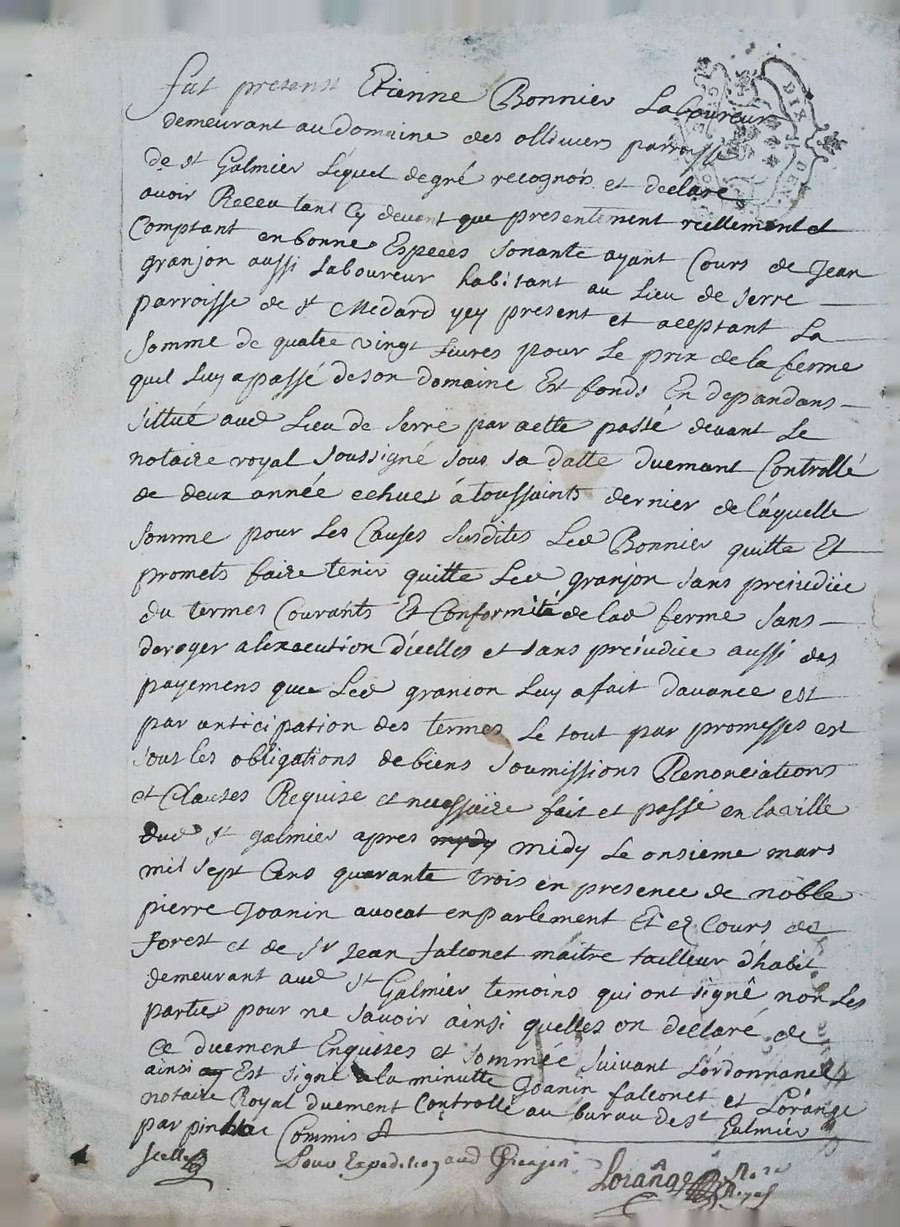 fut present Etienne Bonnier Laboureur
demeurant au domaine des olliviers parroisse
de st Galmier Lequel degré recognois et declare
avoir Receu tant Cy devant que presentement reellement et
Comptant enbonne Especes sonante ayant Cours de Jean
granjon aussi Laboureur habitant au Lieu de Serre
parroisse de st Medard yey present et aceptant La
somme de quatre vingt Livres pour Le prix de la ferme
quil Luy apassé deson domaine Est fonds En depandans
sittué aud Lieu de Serre par acte passé devant Le
notaire royal soussigné sous sa datte duemant Controllé
de deux année echues átoussaints dernier de láquelle
somme pour Les Causes susdites Led Bonnier quitte Et
promets faire tenir quitte Led granjon sans preiudice
du termes Courants Et Conformité de lad ferme sans
daroger alexecution dicelles et sans preiudice aussi des
payemens que Led granion Luy afait davance est
par anticipation des termes Le tout par promesses et
sous les obligations debiens soumissions Renonciations
et Clauses Requise et necessaire fait et passé en laville
dud st galmier apres midy Le onsieme mars
mil sept Cens quarante trois en presence de noble
pierre Joanin avocat enparlement Et es Cours de
Forest et de sr Jean falconet maitre tailleur dhabit
demeurant aud st Galmier temoins qui ont signé non Les
parties pour ne savoir ainsi quelles on declaré de
Ce duement Enquises et sommée suivant Lordonnance
ainsi Est signé ala minutte Joanin falconet et Lorange
notaire Royal duement Controllé au burau de st Galmier
par Commis
scellé
Pour Expedition aud Granjon
Lorange Nore
Royal
DIX DEN.